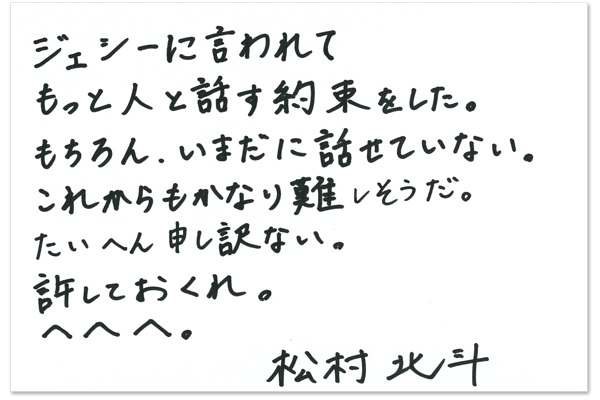 ジェシーに言われて
もっと人と話す約束をした。
もちろん、いまだに話せていない。
これからもかなり難しそうだ。
たいへん申し訳ない。
許しておくれ。
へへへ。
松村北斗